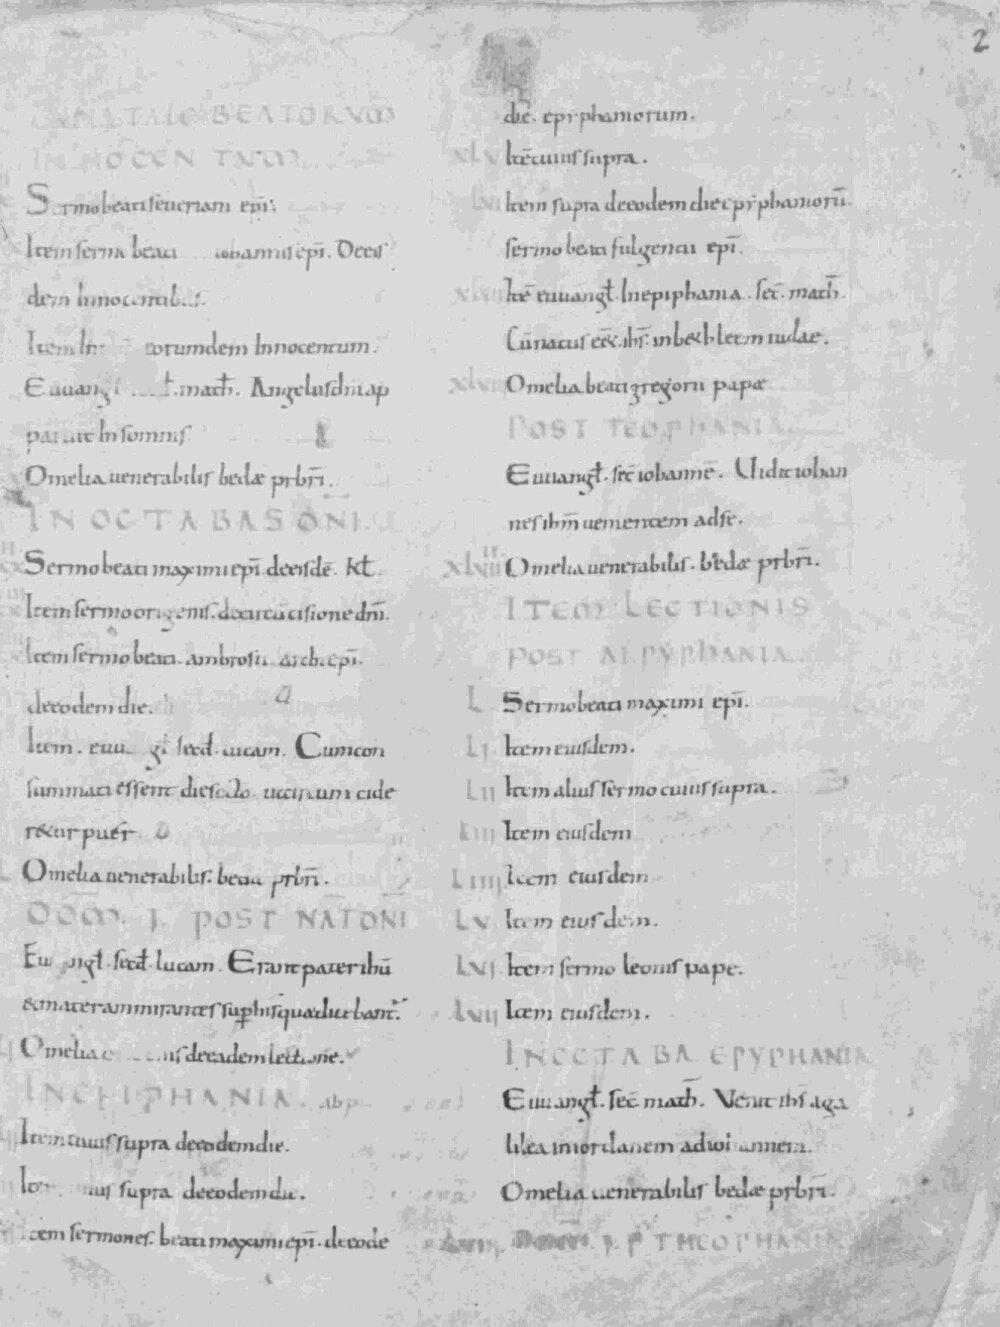 2
IN NATALE BEATORUM
INNOCENTUM
Sermo beati seueriani epi.
Item sermo beati iohannis epi. De eis
dem Innocentibus.
Item In eorumdem Innocentum.
Euuangl math. Angelus dni ap
paruit In somnis
Omelia uenerabilis bedæ prbri.
IN OCTABAS DNI.
Sermo beati maximi epi de eisde kl.
Item sermo origenis. de circucisione dni.
Item sermo beati ambrosii arch epi.
de eodem die.
Item. euu gl secd lucam. Cum con
summati essent dies octo ut circumcide
retur puer
Omelia uenerabilis bedæ prbri.
DOM. I. POST NAT DNI
Euangl. secd. lucam. Erant pater ihu
& mater ammirantes sup his qua dicebant.
Omelia de eadem lectione.
IN EPIPHANIA.
Item cuius supra de eodem die.
Item cuius supra de eodem die.
Item sermones beati maximi epi. de eode
die epyphaniorum.
XLV Ite cuius supra.
Item supra de eodem die epyphanioru.
sermo beati fulgentii epi.
Ite euuangl. In epiphania. sec. math.
Cu natus e&. ihs. in b&hleem iudae.
Omelia beati gregorii papæ
POST TEOPHANIA.
Euuangl. sec iohanne. Uidit iohan
nes ihm uenientem ad se.
Omelia uenerabilis. bedæ prbri.
ITEM LECTIONIS
POST AEPYPHANIA
L Sermo beati maximi epi.
LI Item eiusdem.
LII Item alius sermo cuius supra.
LIII Item eiusdem
LIIII Item eiusdem
LV Item eiusdem.
LVI Item sermo leonis pape.
LVII Item eiusdem.
IN OCTABA EPYPHANIA
Euuangl. sec. math. Venit ihs a ga
lilea in iordanem ad iohannem.
Omelia uenerabilis bedæ prbri.
LVIII I. P THEOPHANIA